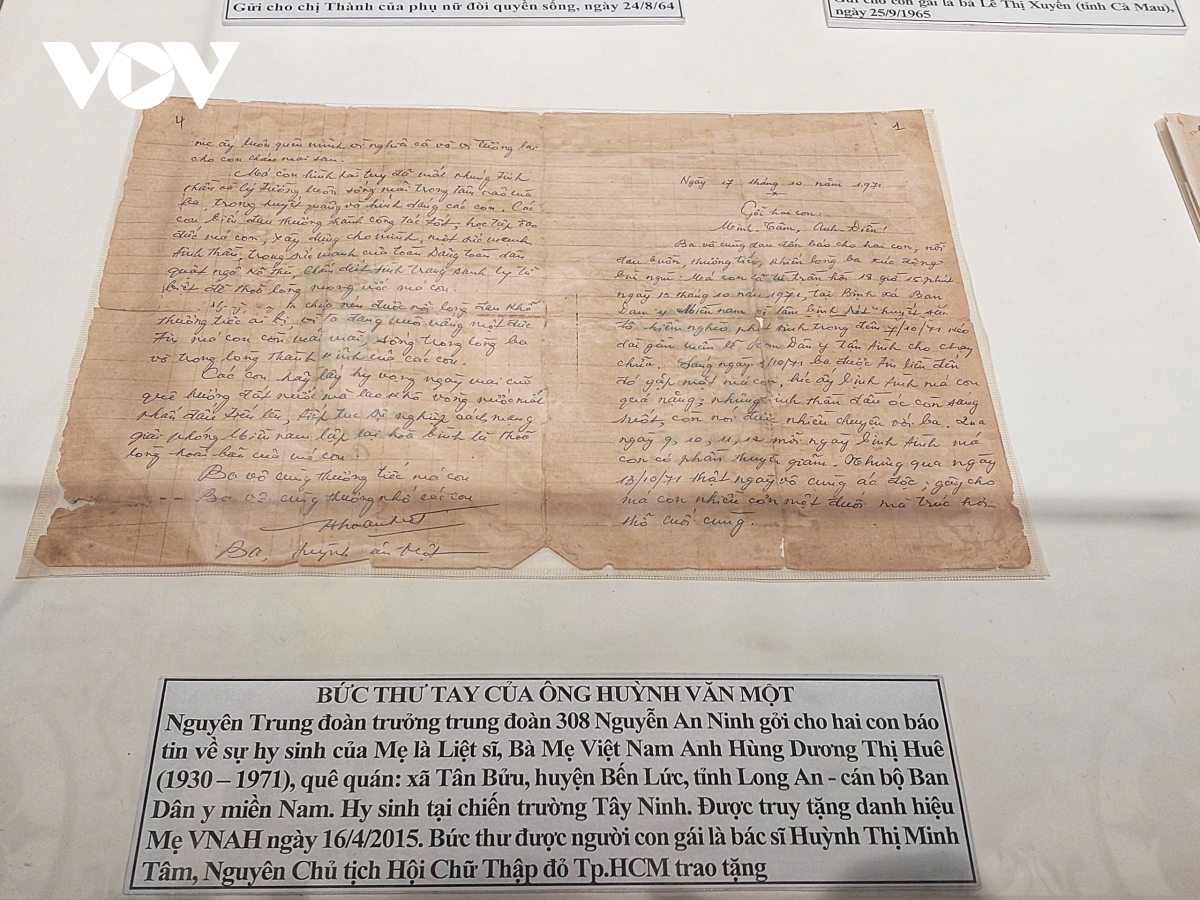 Gửi cho chị Thành của phụ nữ đòi quyền sống, ngày 24/8/64
Gửi cho con gái là bà Lê Thị Xuyến (tỉnh Cà Mau),
ngày 25/9/1965
VOV
4
má ấy luôn quên mình vì nghĩa cả và vì tương lai
cho con cháu mai sau.
Má con hình hài tuy đã mất nhưng tinh
thần và lý tưởng luôn sống mãi trong tâm não của
ba, trong huyết quảng và hình dáng các con. Các
con hiểu đau thương thành công tác tốt, học tập đạo
đức má con, xây dựng cho mình, một sức mạnh
tinh thần, trong sức mạnh của toàn Đảng toàn dân
quật ngã kẻ thù, chấm dứt tình trạng sanh ly tử
biệt để thoả lòng mong ước má con.
chịp nén được nỗi lòng đau khổ
thương tiếc ai bị, vì ta đang nuôi nấng một đức
tin má con còn mãi mãi, sống trong lòng ba
và trong lòng thành kính của các con.
Các con hãy lấy hy vọng ngày mai của
quê hương đất nước mà lao khổ vong nước mắt
phấn đấu tiến lên, tiếp tục sự nghiệp cách mạng
giải phóng Miền nam lập lại hoà bình là thoả
lòng hoài bão của má con.
Ba vô cùng thương tiếc má con
Ba vô cùng thương nhớ các con
Ba, Huỳnh văn Một
1
Ngày 17 tháng 10 năm 1971
Gởi hai con:
Minh-Tâm, Anh-Điền!
Ba vô cùng đau đớn báo cho hai con, nỗi
đau buồn, thương tiếc, khiến lòng ba xúc động
bùi ngùi. Má con đã từ trần hồi 18 giờ 15 phút
ngày 13 tháng 10 năm 1971, tại Bình xá Ban
Dân y Miền nam vì lâm bịnh sốt huyết
hiểm nghèo phát sinh trong đêm 7/10/71 kéo
dài gần Ban Dân y tận tình cho chạy
chữa. Sáng ngày /10/71 ba được tin liền đến
đó gặp mặt má con, lúc ấy bịnh tình má con
quá nặng; nhưng tinh thần đầu óc con sáng
suốt, còn nói được nhiều chuyện với ba. Qua
ngày 9, 10, 11, 12 mỗi ngày bịnh tình má
con có phần thuyên giảm. Nhưng qua ngày
13/10/71 thật ngày vô cùng ác độc, gây cho
má con nhiều cơn mệt đuối mà trúc hơi
thở cuối cùng.
BỨC THƯ TAY CỦA ÔNG HUỲNH VĂN MỘT
Nguyên Trung đoàn trưởng trung đoàn 308 Nguyễn An Ninh gởi cho hai con báo
tin về sự hy sinh của Mẹ là Liệt sĩ, Bà Mẹ Việt Nam Anh Hùng Dương Thị Huê
(1930 – 1971), quê quán: xã Tân Bửu, huyện Bến Lức, tỉnh Long An - cán bộ Ban
Dân y miền Nam. Hy sinh tại chiến trường Tây Ninh. Được truy tặng danh hiệu
Mẹ VNAH ngày 16/4/2015. Bức thư được người con gái là bác sĩ Huỳnh Thị Minh
Tâm, Nguyên Chủ tịch Hội Chữ Thập đỏ Tp.HCM trao tặng